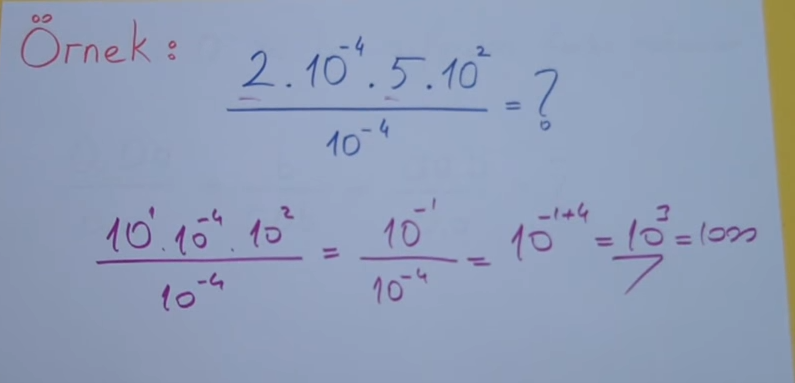 Örnek :
2 . 10⁻⁴ . 5 . 10² / 10⁻⁴ = ?
10¹ . 10⁻⁴ . 10² / 10⁻⁴ = 10⁻¹ / 10⁻⁴ = 10⁻¹⁺⁴ = 10³ = 1000